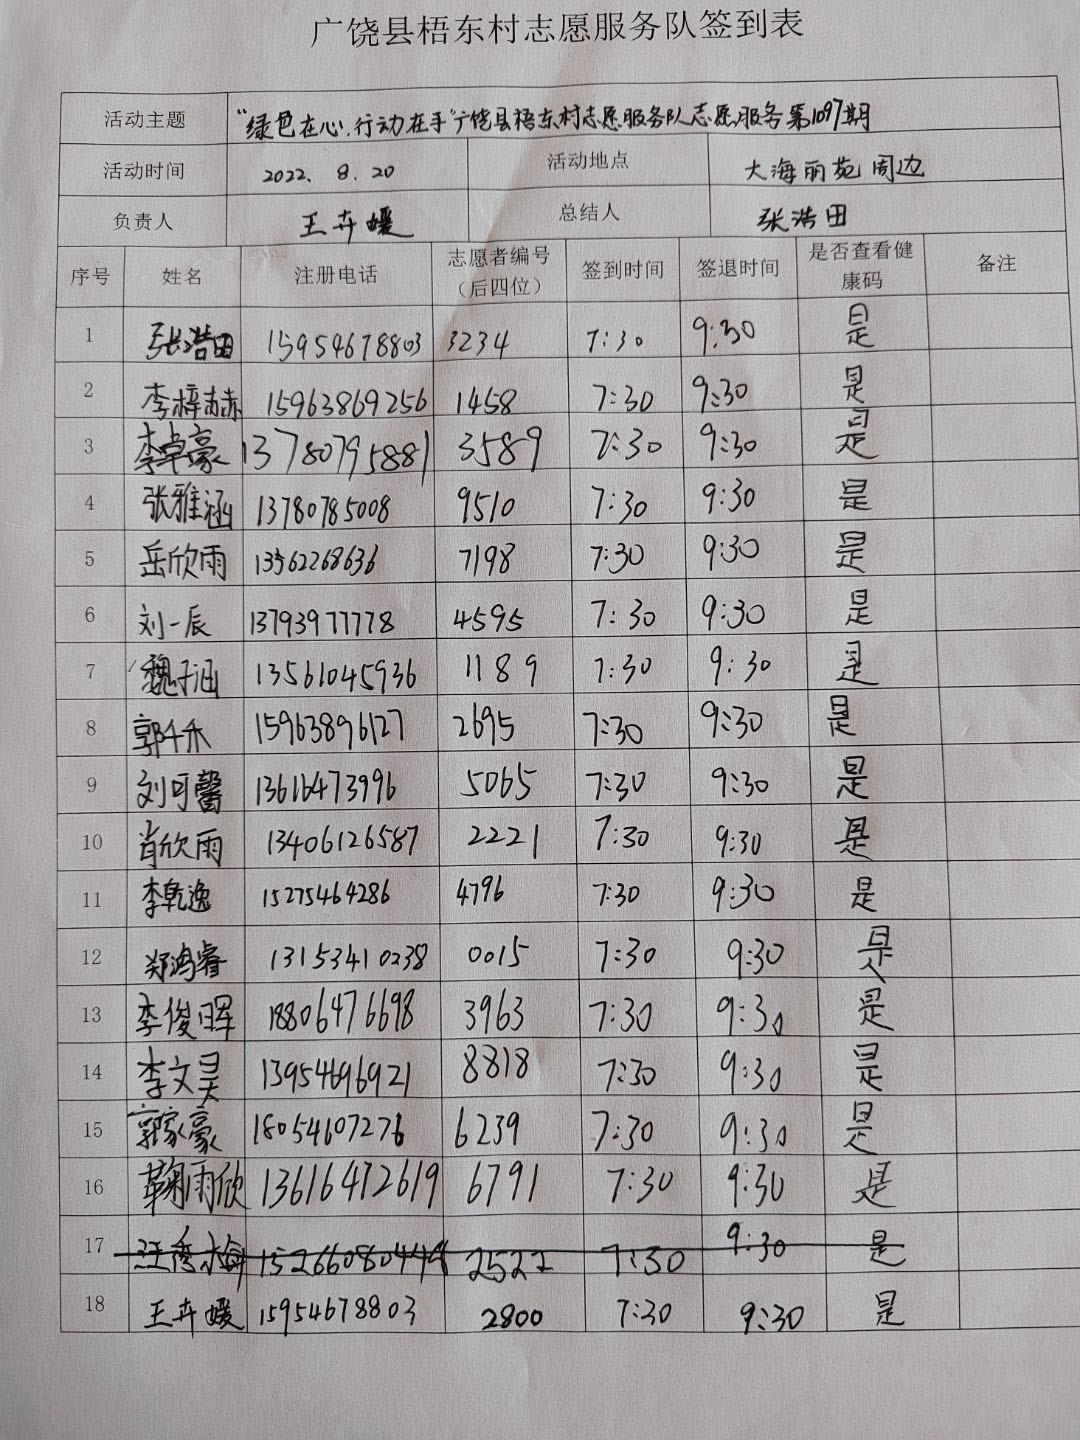 广饶县梧东村志愿服务队签到表
活动主题 “绿色在心,行动在手”广饶县梧东村志愿服务队志愿服务第1097期
活动时间 2022、8.20 活动地点 大海丽苑周边
负责人 王卉媛 总结人 张浩田
序号 姓名 注册电话 志愿者编号(后四位) 签到时间 签退时间 是否查看健康码 备注
1 张浩田 15954678803 3234 7:30 9:30 是
2 李梓赫 15963869256 1458 7:30 9:30 是
3 李卓豪 13780795881 3589 7:30 9:30 是
4 张雅涵 13780785008 9510 7:30 9:30 是
5 岳欣雨 13562268636 7198 7:30 9:30 是
6 刘一辰 13793977778 4595 7:30 9:30 是
7 魏子涵 13561045936 1189 7:30 9:30 是
8 郭千禾 15963896127 2695 7:30 9:30 是
9 刘可馨 13616473996 5065 7:30 9:30 是
10 肖欣雨 13406126587 2221 7:30 9:30 是
11 李乾逸 15275464286 4796 7:30 9:30 是
12 郑鸿睿 13153410238 0015 7:30 9:30 是
13 李俊晖 18806476698 3963 7:30 9:30 是
14 李文昊 13954696921 8818 7:30 9:30 是
15 郭家豪 18054607276 6239 7:30 9:30 是
16 鞠雨欣 13616472619 6791 7:30 9:30 是
17 2522 7:30 9:30 是
18 王卉媛 15954678803 2800 7:30 9:30 是